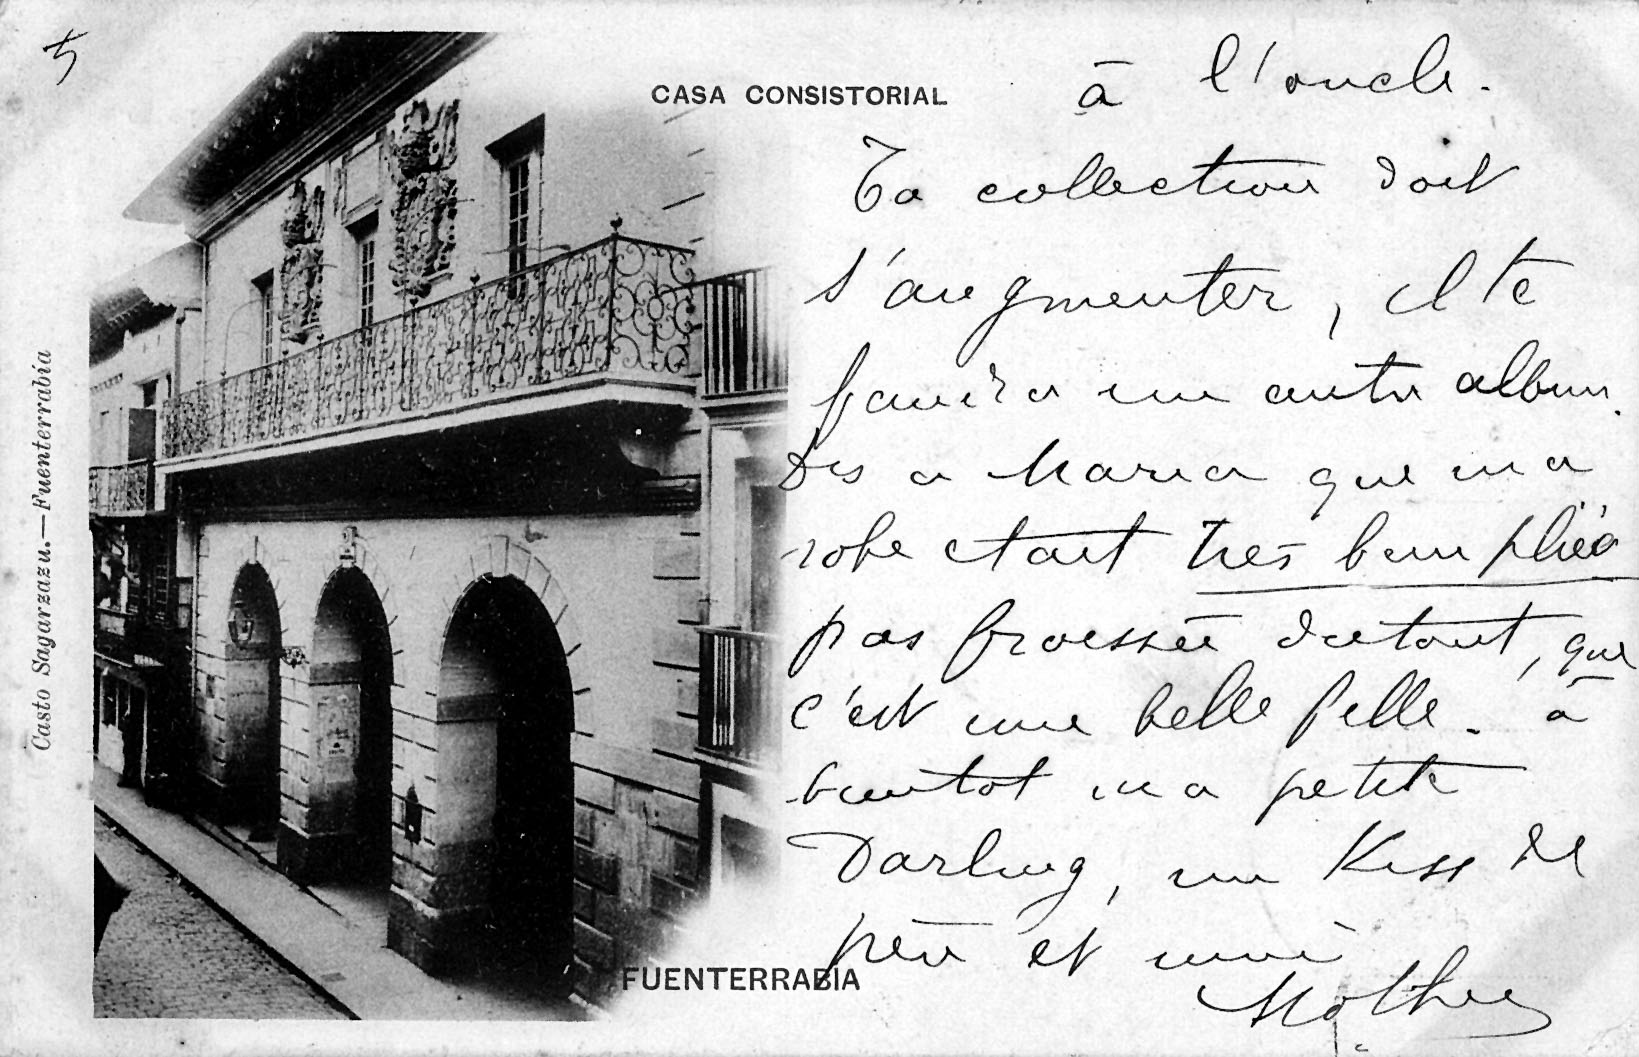 5
CASA CONSISTORIAL
à l'oncle.
Ta collection doit
s'augmenter, il te
faudra un autre album.
Dis a Maria que ma
robe etait très bien pliée
pas froessée dutout, que
c'est une belle fille. à
bientot ma petite
Darling, un Kiss de
père et
Mother
FUENTERRABIA
Casto Sagarzazu.—Fuenterrabia